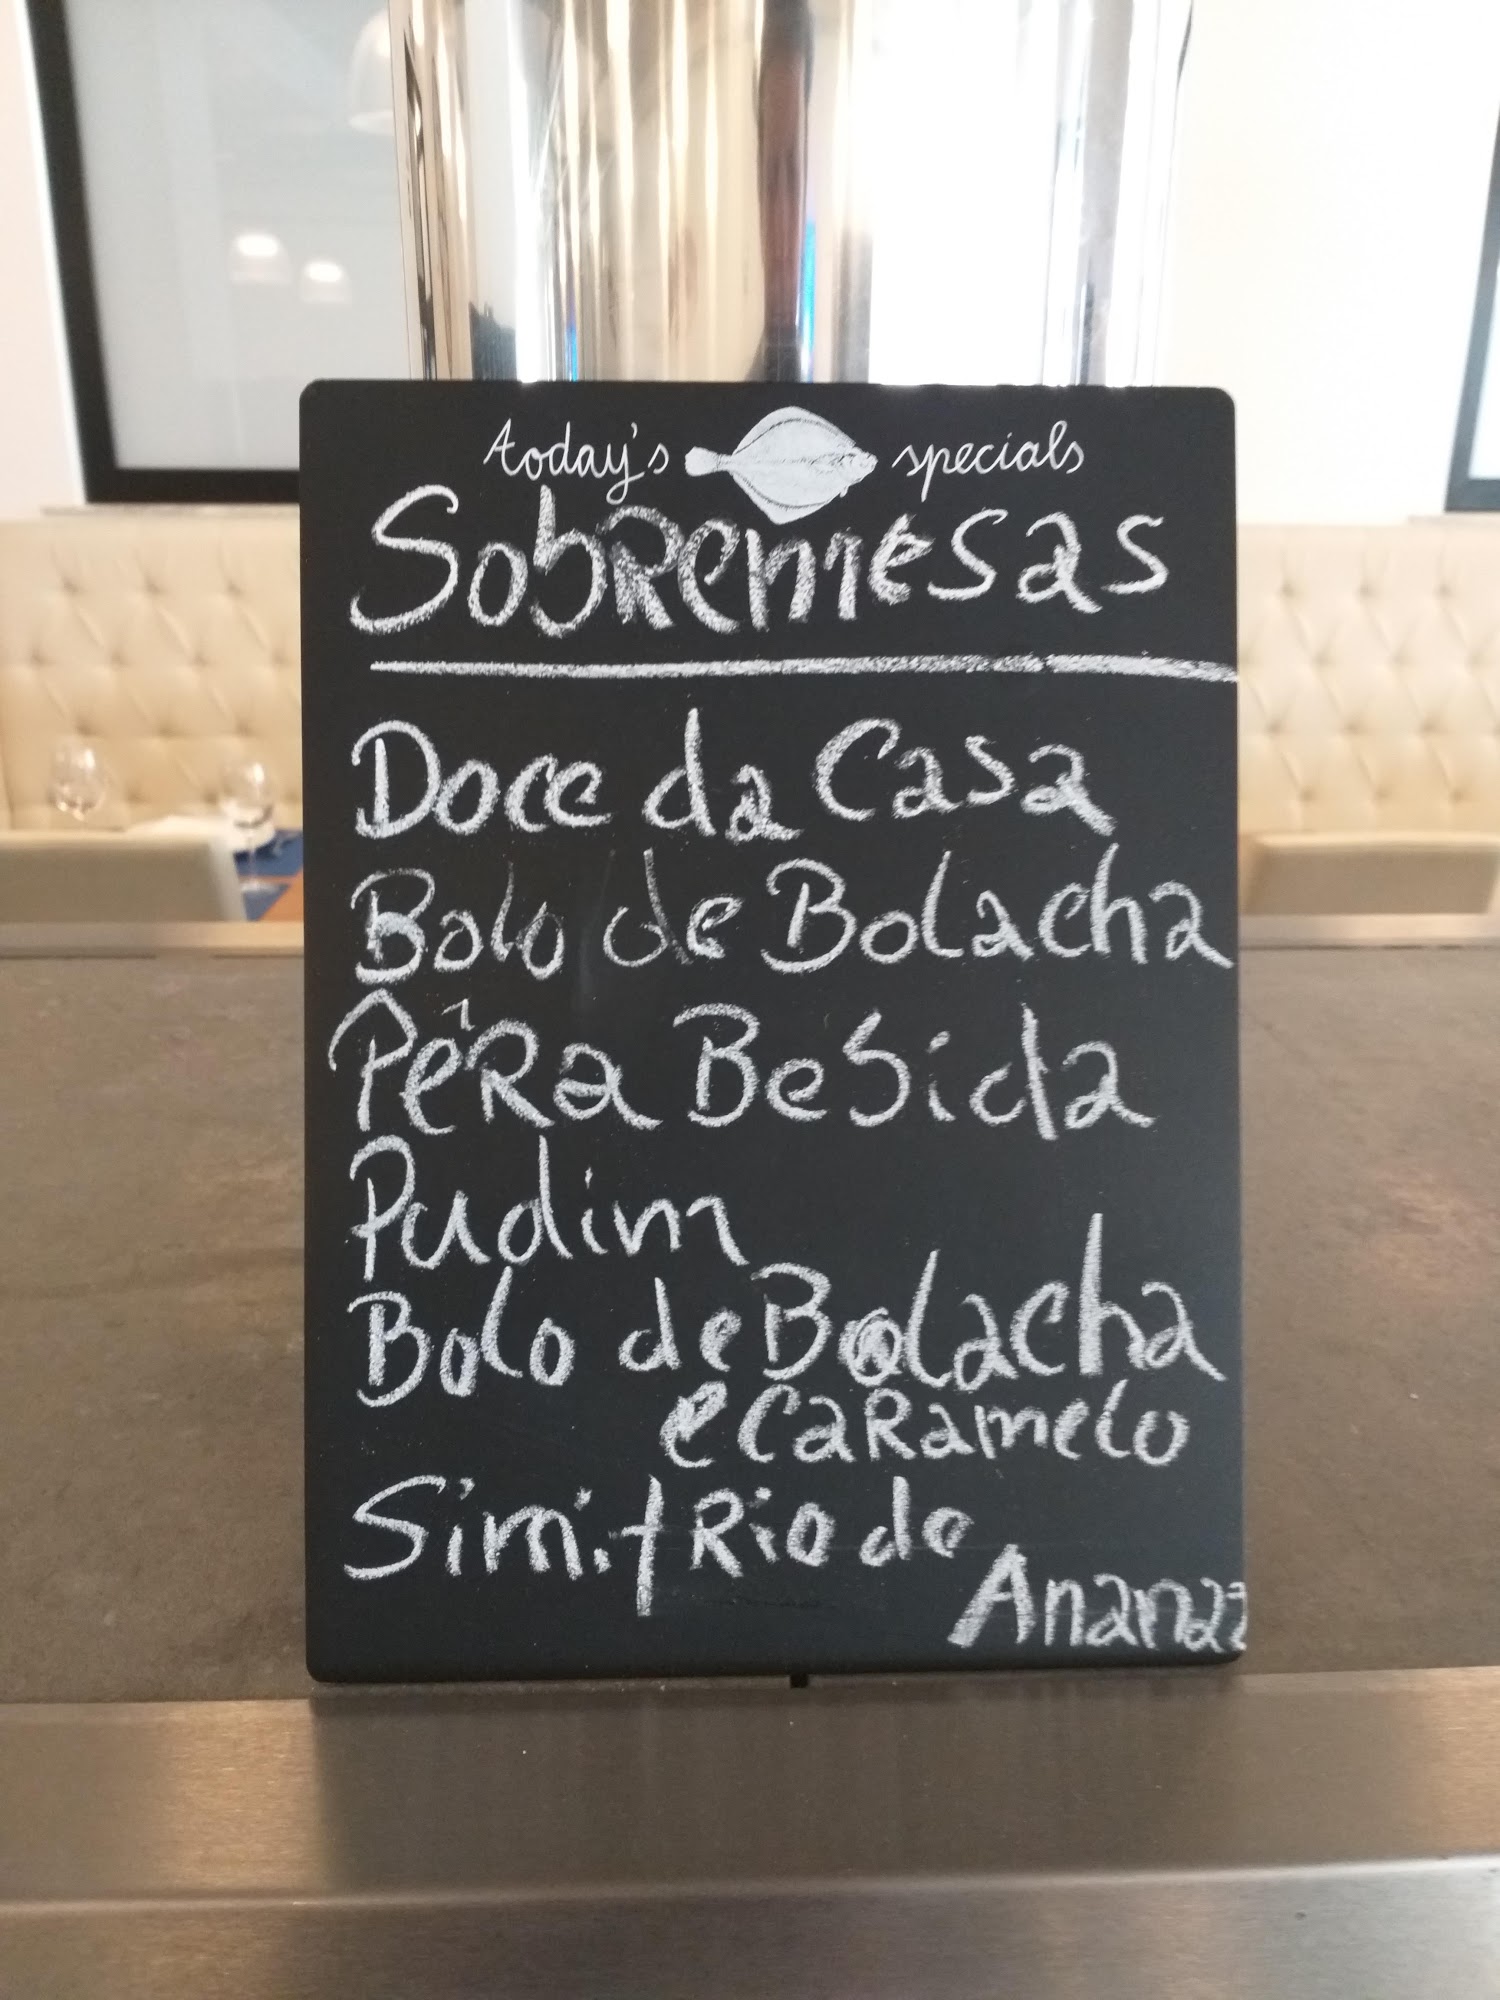 today's specials
Sobremesas
Doce da Casa
Bolo de Bolacha
Pêra Bebida
Pudim
Bolo de Bolacha
e Caramelo
Simi.frio de
Ananaz